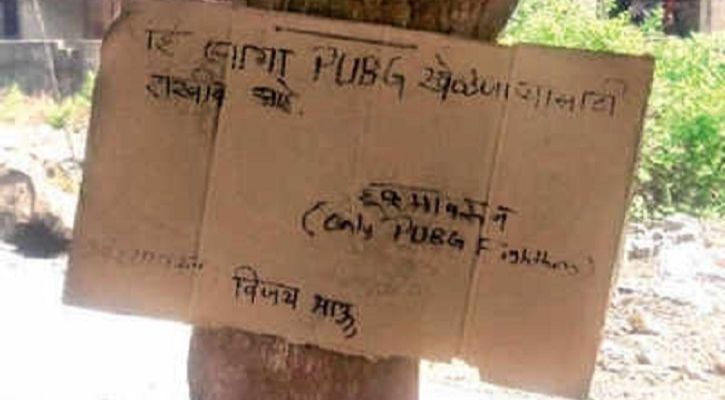 हि जागा PUBG खेळणाऱ्यासाठी
राखीव आहे.
(only PUBG Fighthers)
विजय भाऊ